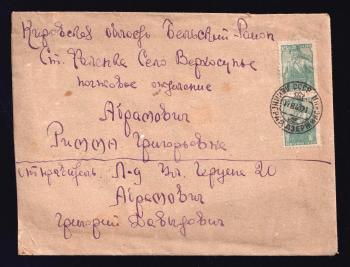 Кировская область Бельский Район
Ст. Фаленка Село Верхосунье
почтовое отделение
Абрамович
Римма Григорьевна
отправитель Л-д Ул. Герцена 20
Абрамович
Григорий Давыдович